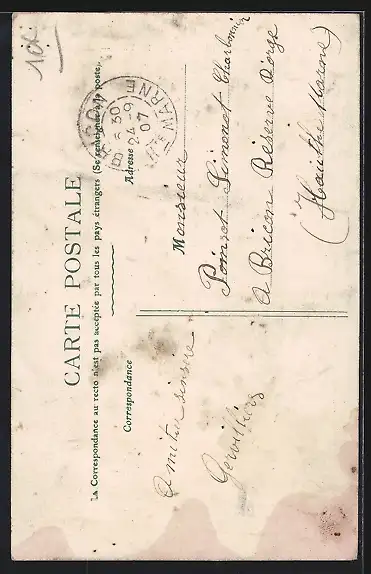 10f
CARTE POSTALE
La Correspondance au recto n'est pas acceptée par tous les pays étrangers (Se renseigner à la poste)
Correspondance
Adresse
8 30
24-9
07
MARNE
Amitié sinsère
Gervilliers
Monsieur
Poinsot Simonet Charbonnier
a Bricon Réserve Dorge
(Haute Marne)